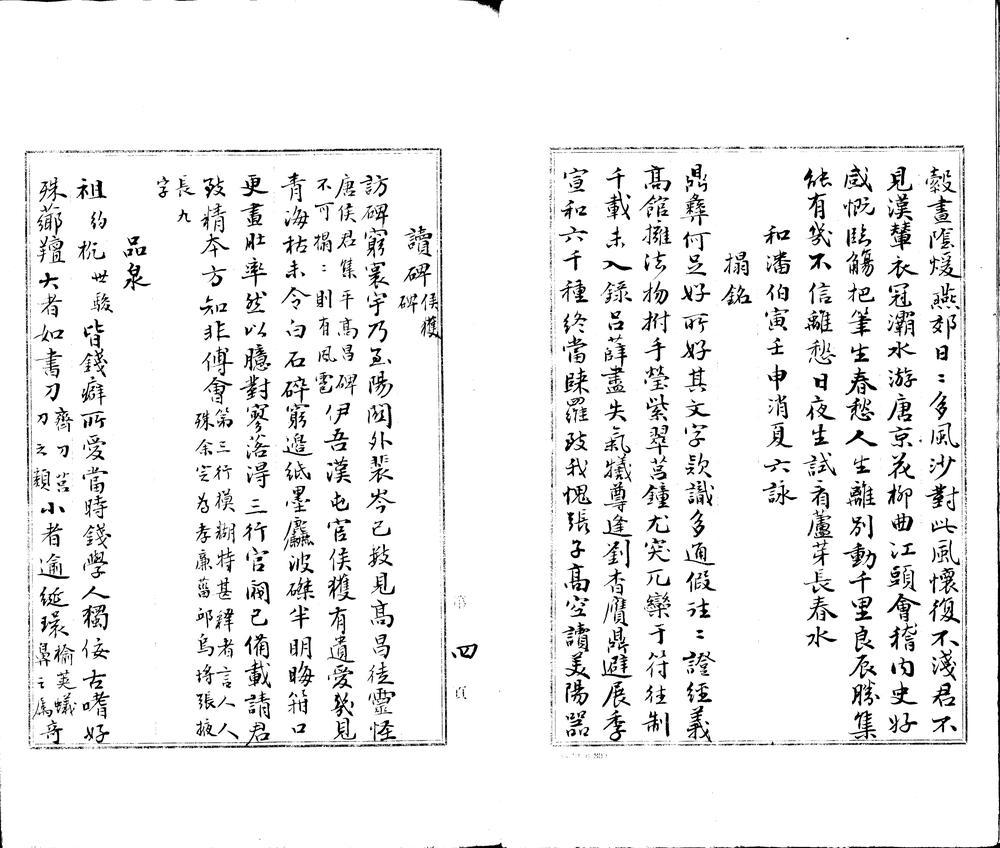 縠畫陰煖燕郊日〻多風沙對此風懷復不淺君不
見漢輦衣冠灞水游唐京花柳曲江頭會稽內史好
感慨臨觴把筆生春愁人生離別動千里良辰勝集
能有幾不信離愁日夜生試看蘆芽長春水
和潘伯寅壬申消夏六詠
搨銘
鼎彝何足好所好其文字欵識多通假往〻證經義
高館擁法物拊手瑩紫翠莒鐘尤突兀欒于符往制
千載未入錄呂薛盡失氣犧尊逢劉杳贗鼎避展季
宣和六千種終當賕羅致我愧張子高空讀美陽器
讀碑侯獲碑
訪碑窮寰宇乃至陽關外裴岑已數見高昌徒靈怪
唐侯君集平高昌碑不可搨〻則有風雹伊吾漢屯官侯獲有遺愛幾見
青海枯未令白石碎窮邊紙墨麤波磔半明晦籀口
更畫肚率然以臆對寥落得三行官閥已備載請君
致精本方知非傅會第三行模糊特甚釋者言人人殊余定為孝廉菑邱烏垿張掖
長九字
品泉
祖約杭世駿皆錢癖所愛當時錢學人獨佞古嗜好
殊薌羶大者如書刀齊刀莒刀之類小者逾綖環榆莢蟻鼻之屬奇
第四頁